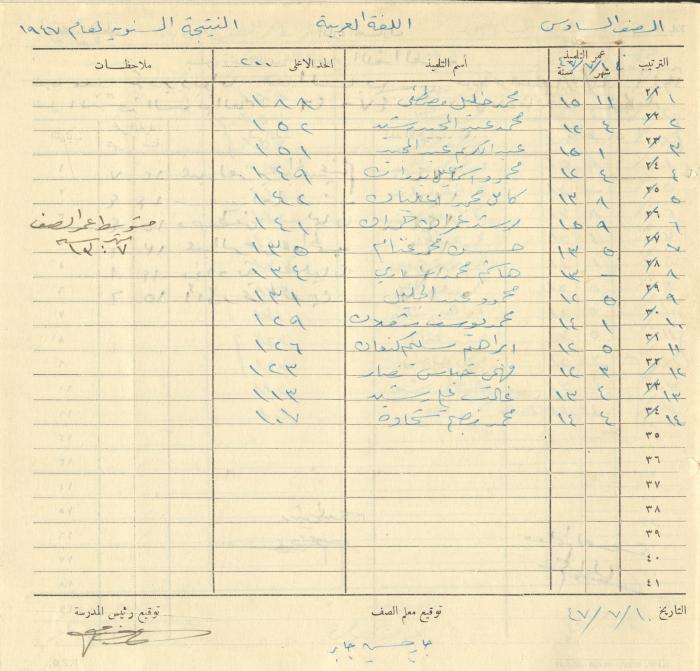 الصف السادس اللغة العربية النتيجة السنوية لعام ١٩٤٧
الترتيب عمر التلميذ أسم التلميذ الحد الاعلى ٢٠٠ ملاحظات
شهر سنة
٢١ ١ ١١ ١٥ محمد خليل مصطفى ١٨٨
٢٢ ٢ ٤ ١٢ محمد عبد المجيد رشيد ١٥٢
٢٣ ٣ ١ ١٥ عبد الكريم عبد المجيد ١٥١
٢٤ ٤ ٤ ١٢ محمود ١٤٩
٢٥ ٥ ٨ ١٣ كامل محمد ١٤٢
٢٦ ٦ ٩ ١٥ ١٤١ متوسط عمر الصف
٢٧ ٧ ٥ ١٣ محمد ١٣٥ ١٣٠٧
٢٨ ٨ - ١٣ هاشم محمد ١٣٤
٢٩ ٩ ٥ ١٢ محمود عبد الجليل ١٣١
٣٠ ١٠ ١ ١٤ محمد يوسف ١٢٩
٣١ ١١ ٥ ١٢ ابراهيم سليم كنعان ١٢٦
٣٢ ١٢ ٣ ١٢ فهمي عباس نصار ١٢٣
٣٣ ١٣ ٤ ١٣ غالب علي رشيد ١١٣
٣٤ ١٤ ٤ ١٤ محمد شحادة ١٠٧
٣٥
٣٦
٣٧
٣٨
٣٩
٤٠
٤١
التاريخ ٤٧/٧/١٠ توقيع معلم الصف توقيع رئيس المدرسة
حسين جابر